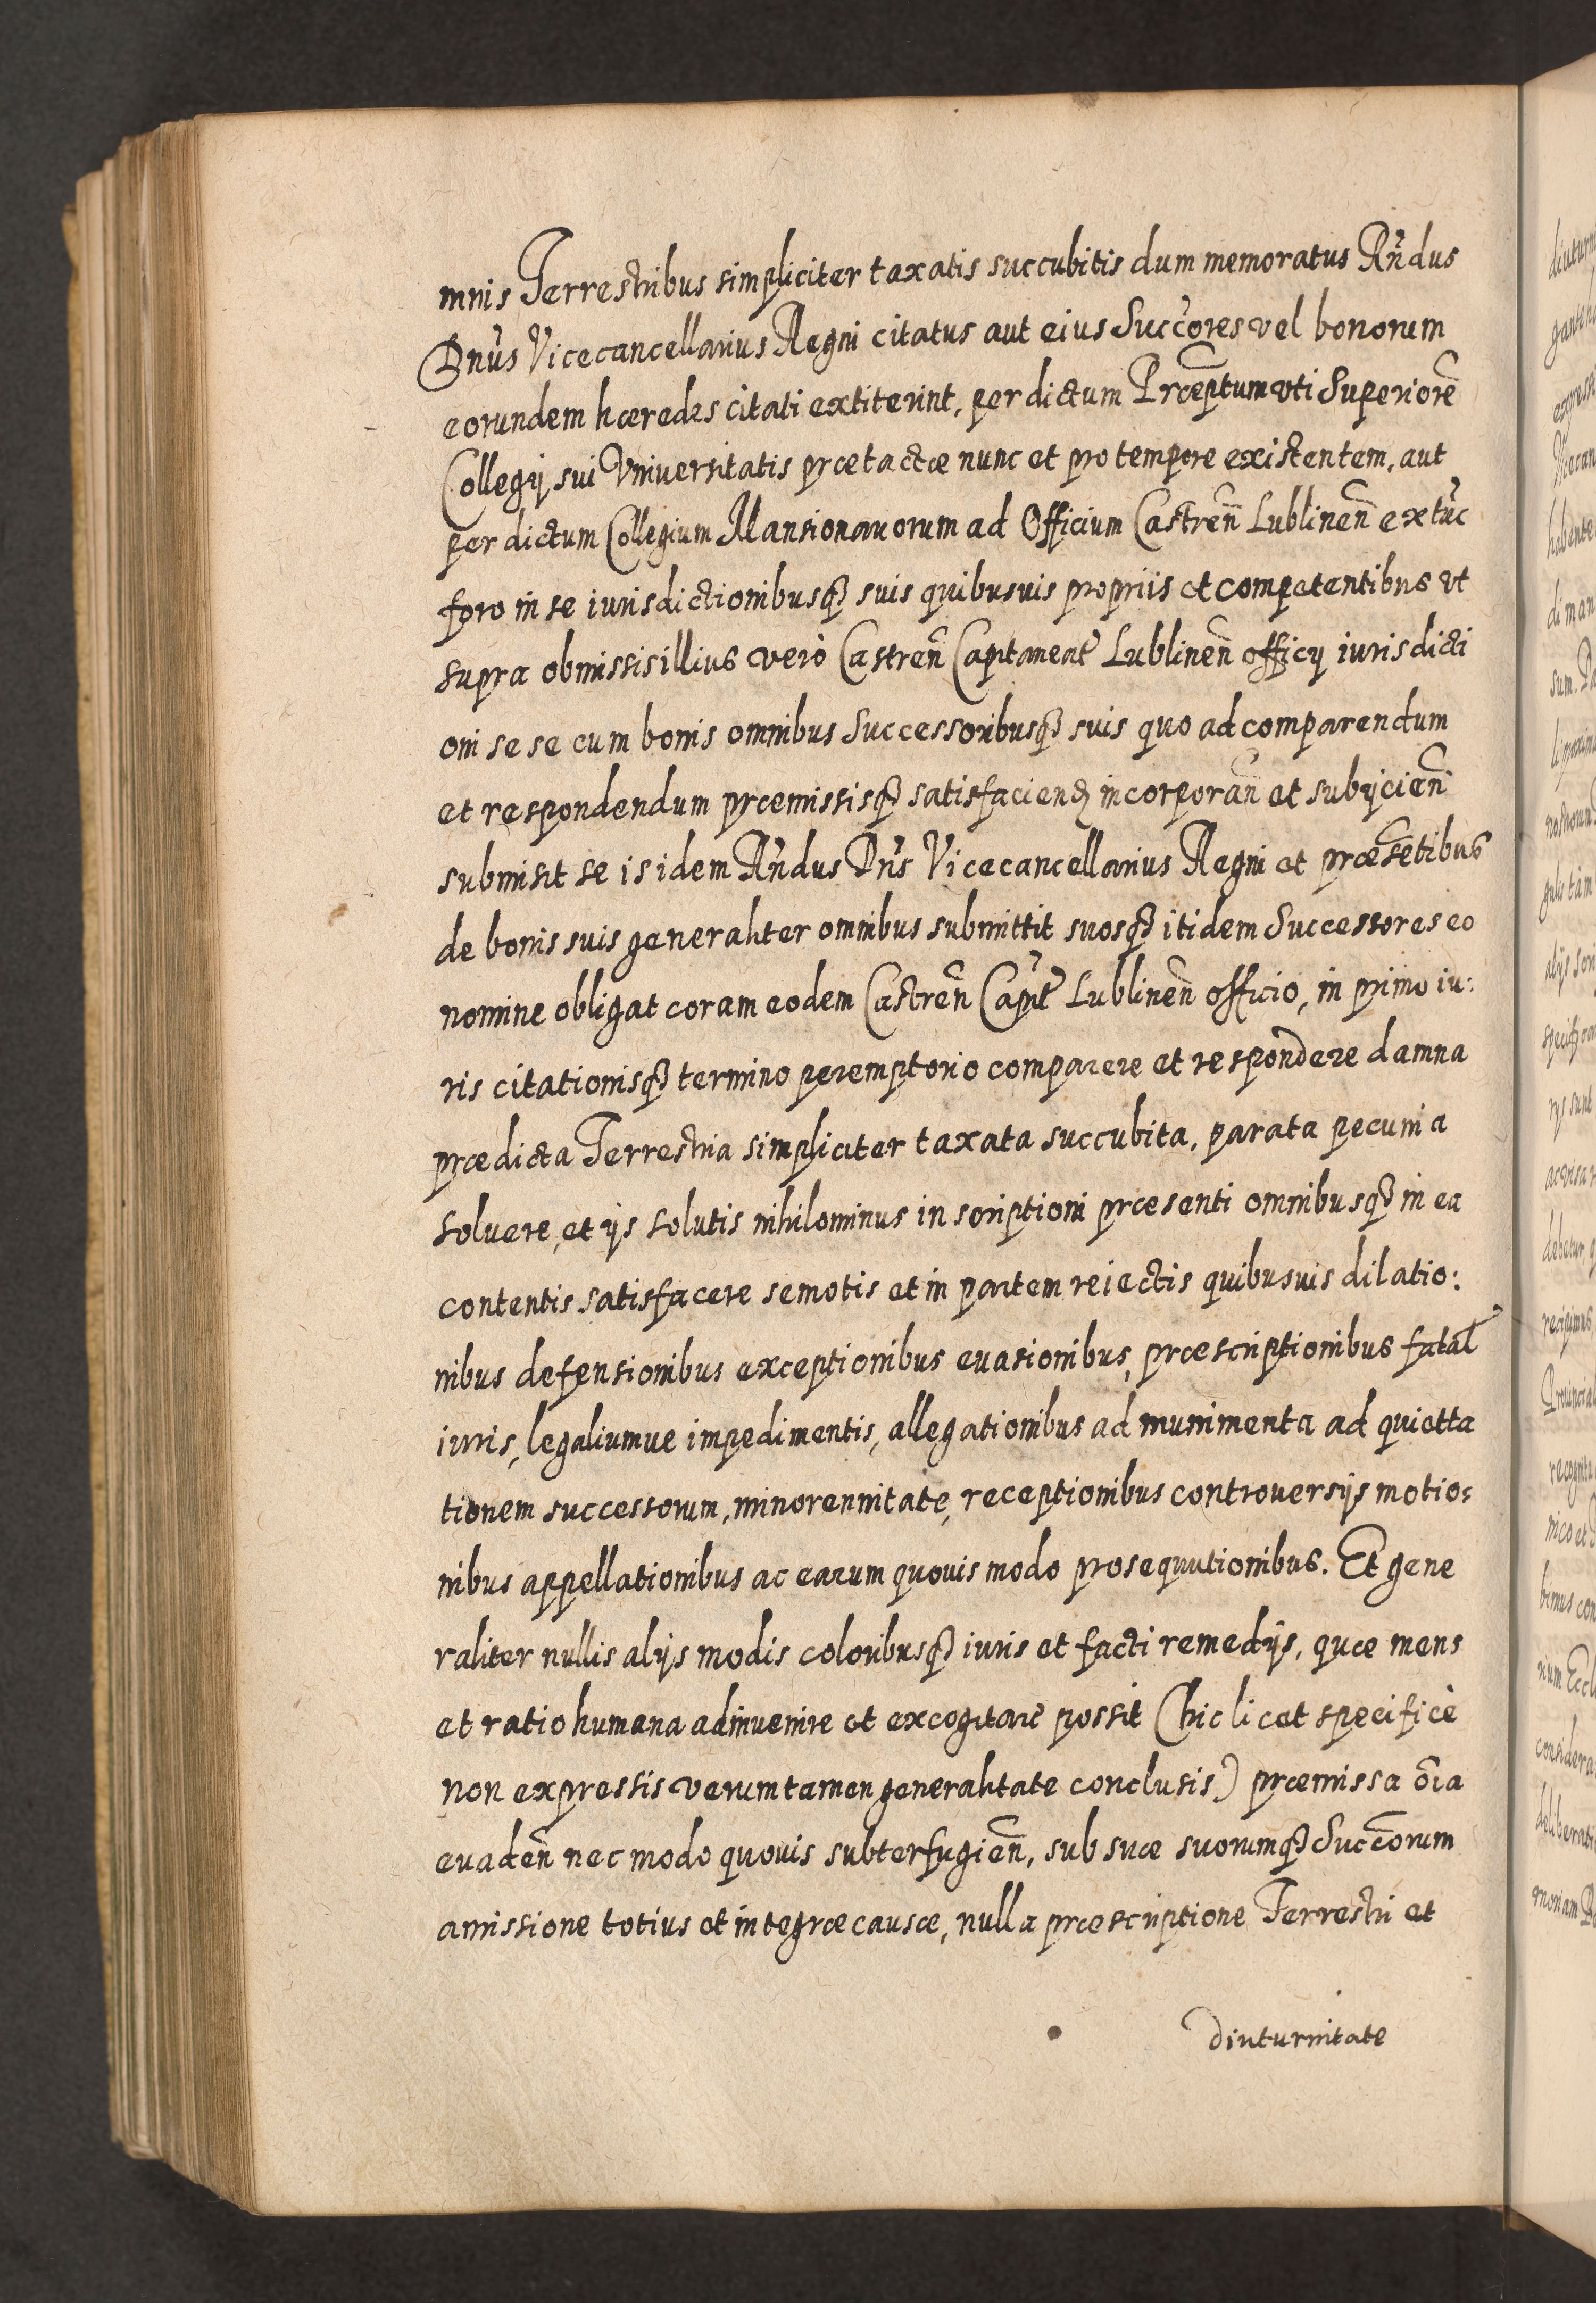 mnis Terrestribus simpliciter taxatis succubitis dum memoratus Rñdus
Dnus Vicecancellarius Regni citatus aut eius Succores vel bonorum
eorundem hæredes citati extiterint, per dictum Præptum vti Superiorē
Collegij sui Vniversitatis prætactæ nunc et pro tempore existentem, aut
per dictum Collegium Mansionariorum ad Officium Castreñ Lublineñ extūc
foro in se iurisdictionibusq₃ suis quibusuis propriis et competentibus vt
supra obmissis illius verò Castreñ Capitaneat Lublineñ officij iurisdicti
oni se se cum bonis omnibus Successoribusq₃ suis quo ad comparendum
et respondendum præmissisq₃ satisfaciend₃ incorporañ et subijcieñ
submisit se is idem Rñdus Dñs Vicecancellarius Regni et præsētibus
de bonis suis generaliter omnibus submittit suosq₃ itidem Successores eo
nomine obligat coram eodem Castreñ Capit Lublineñ officio, in primo iu:
ris citationisq₃ termino peremptorio comparere et respondere damna
prædicta Terrestria simpliciter taxata succubita, parata pecunia
soluere, et ijs solutis nihilominus inscriptioni præsenti omnibusq₃ in ea
contentis satisfacere semotis et in partem reiectis quibusuis dilatio:
nibus defensionibus exceptionibus euasionibus, præscriptionibus fatal
iuris, legaliumue impedimentis, allegationibus ad munimenta ad quietta
tionem successorum, minorennitate, receptionibus controuersijs motio:
nibus appellationibus ac earum quouis modo prosequutionibus. Et gene
raliter nullis alijs modis coloribusq₃ iuris et facti remedijs, quæ mens
et ratio humana adinuenire et excogitare possit (hic licet specificè
non expressis verumtamen generalitate conclusis) præmissa oīa
euadeñ nec modo quouis subterfugieñ, sub suæ suorumq₃ Succorum
amissione totius et integræ causæ, nulla præscriptione Terrestri et
diuturnitate